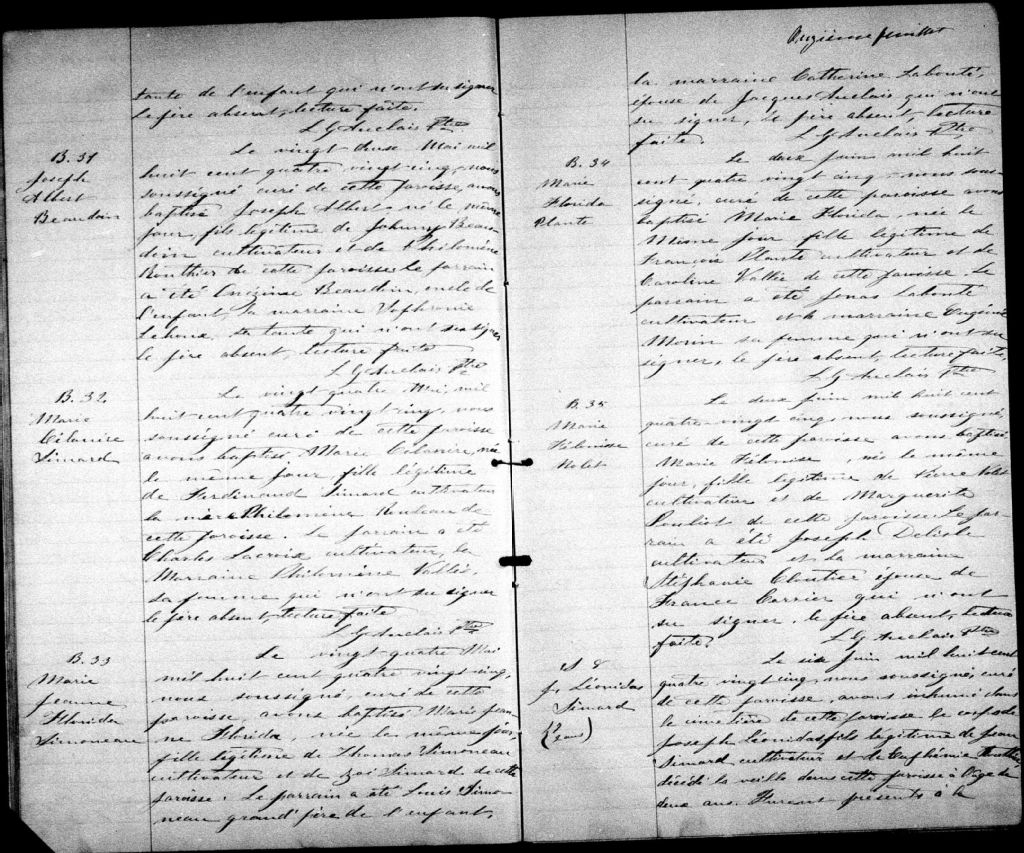 tante de l'enfant qui n'ont su signer
le père absent, lecture faite.
L G Auclais Ptre
B. 31
Joseph
Albert
Beaudoin
Le vingt deuse Mai mil
huit cent quatre vingt cinq, nous
soussigné curé de cette paroisse, avons
baptisé Joseph Albert né le même
jour, fils légitime de Johnny Beau
doin cultivateur et de Philomène
Bouthier de cette paroisse, le parrain
a été Onézime Beaudoin, oncle de
l'enfant la marraine Sophronie
Leheux sa tante qui n'ont su signer
le père absent, lecture faite
L G Auclais Ptre
B. 32
Marie
Célanire
Simard
Le vingt quatre Mai, mil
huit cent quatre vingt cinq, nous
soussigné curé de cette paroisse
avons baptisé Marie Célanire, née
le même jour fille légitime
de Ferdinand Simard cultivateur
la mère Philomène Rouleau de
cette paroisse. Le parrain a été
Charles Lacroix cultivateur, la
Marraine Philomène Vallée,
sa femme qui n'ont su signer
le père absent, lecture faite
L G Auclais Ptre
B. 33
Marie
Jeanne
Florida
Simoneau
Le vingt-quatre Mai
mil huit cent quatre vingt cinq,
nous soussigné, curé de cette
paroisse, avons baptisé Marie Jean
ne Florida, née le même jour,
fille légitime de Thomas Simoneau
cultivateur et de Zoé Simard de cette
paroisse. Le parrain a été Louis Simo
neau grand'père de l'enfant,
Onzième feuillet
la marraine Catherine Labonté,
épouse de Jacques Auclais qui n'ont
su signer, le père absent, lecture
faite. L G Auclais Ptre
B. 34
Marie
Florida
Plante
Le deux Juin mil huit
cent quatre vingt cinq nous sous-
signé, curé de cette paroisse avons
baptisé Marie Florida, née le
Même jour fille légitime de
François Plante cultivateur et de
Caroline Vallée de cette paroisse. Le
parrain a été Jonas Labonté
cultivateur et la marraine Eugénie
Morin sa femme qui n'ont su
signer, le père absent, lecture faite,
L G Auclais Ptre
B. 35
Marie
Hélonise
Nolet
Le deux Juin mil huit cent
quatre-vingt cinq, nous soussigné,
curé de cette paroisse avons baptisé
Marie Hélonise née le même
jour, fille légitime de Pierre Nolet
cultivateur et de Marguerite
Pouliot de cette paroisse. Le par-
rain a été Joseph Delisle
cultivateur et la marraine
Stéphanie Cloutier épouse de
France Carrier qui n'ont
su signer, le père absent, lecture
faite. L G Auclais Ptre
S 8
J. Léonidas
Simard
(2 ans)
Le six Juin mil huit cent
quatre vingt cinq, nous soussigné, curé
de cette paroisse, avons inhumé dans
le cimetière de cette paroisse le corps de
Joseph Léonidas fils légitime de Jean
Simard cultivateur et de Euphémie
décédé la veille dans cette paroisse à l'âge de
deux ans. Furent présents à la